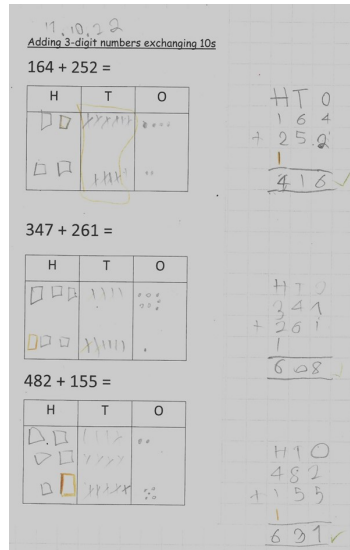 17.10.22
Adding 3-digit numbers exchanging 10s
164 + 252 =
H T O
H T O
1 6 4
+ 2 5 2
1
4 1 6 ✓
347 + 261 =
H T O
H T O
3 4 7
+ 2 6 1
1
6 0 8 ✓
482 + 155 =
H T O
H T O
4 8 2
+ 1 5 5
1
6 3 7 ✓